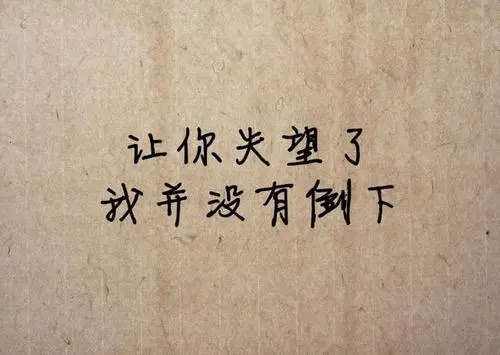 让你失望了
我并没有倒下